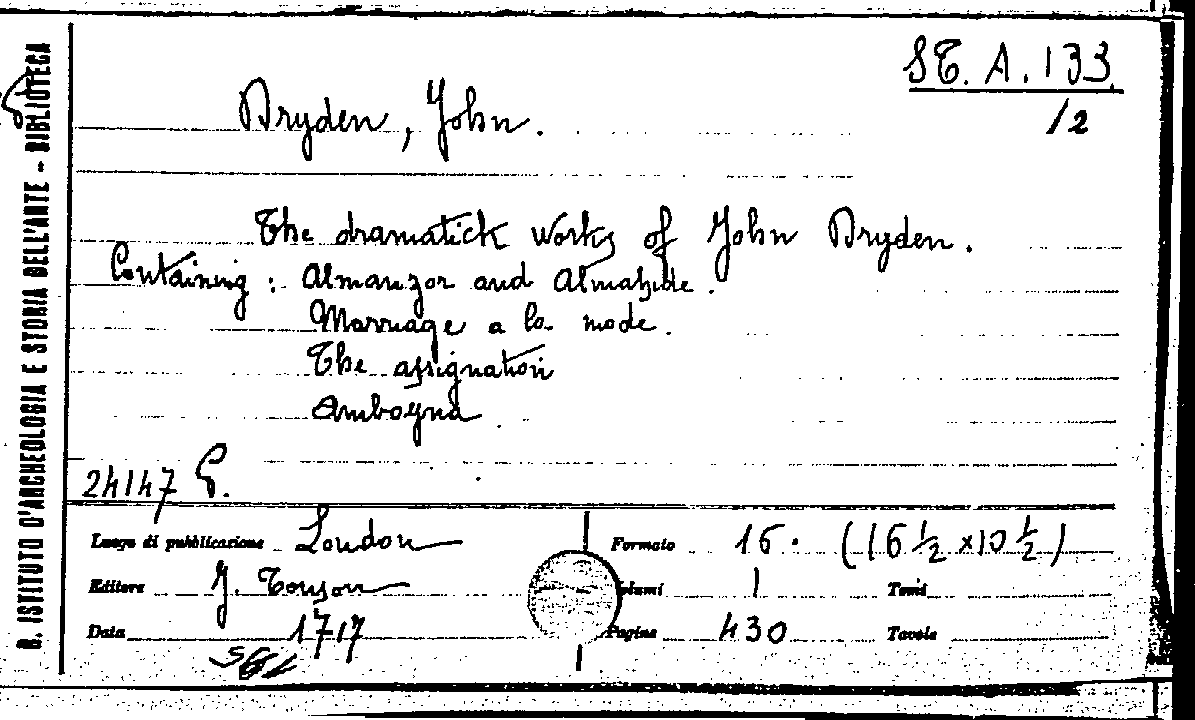 R. ISTITUTO D'ARCHEOLOGIA E STORIA DELL'ARTE - BIBLIOTECA
ST. A. 133
/2
Dryden, John.
The dramatick works of John Dryden.
Containing: Almanzor and Almahide.
Marriage a la mode.
The assignation
Amboyna
24147 G.
Luogo di pubblicazione London
Editore J. Tonson
Data 1717
Formato 16. (16 1/2 x 10 1/2)
Volumi 1 Tomi
Pagine 430 Tavole